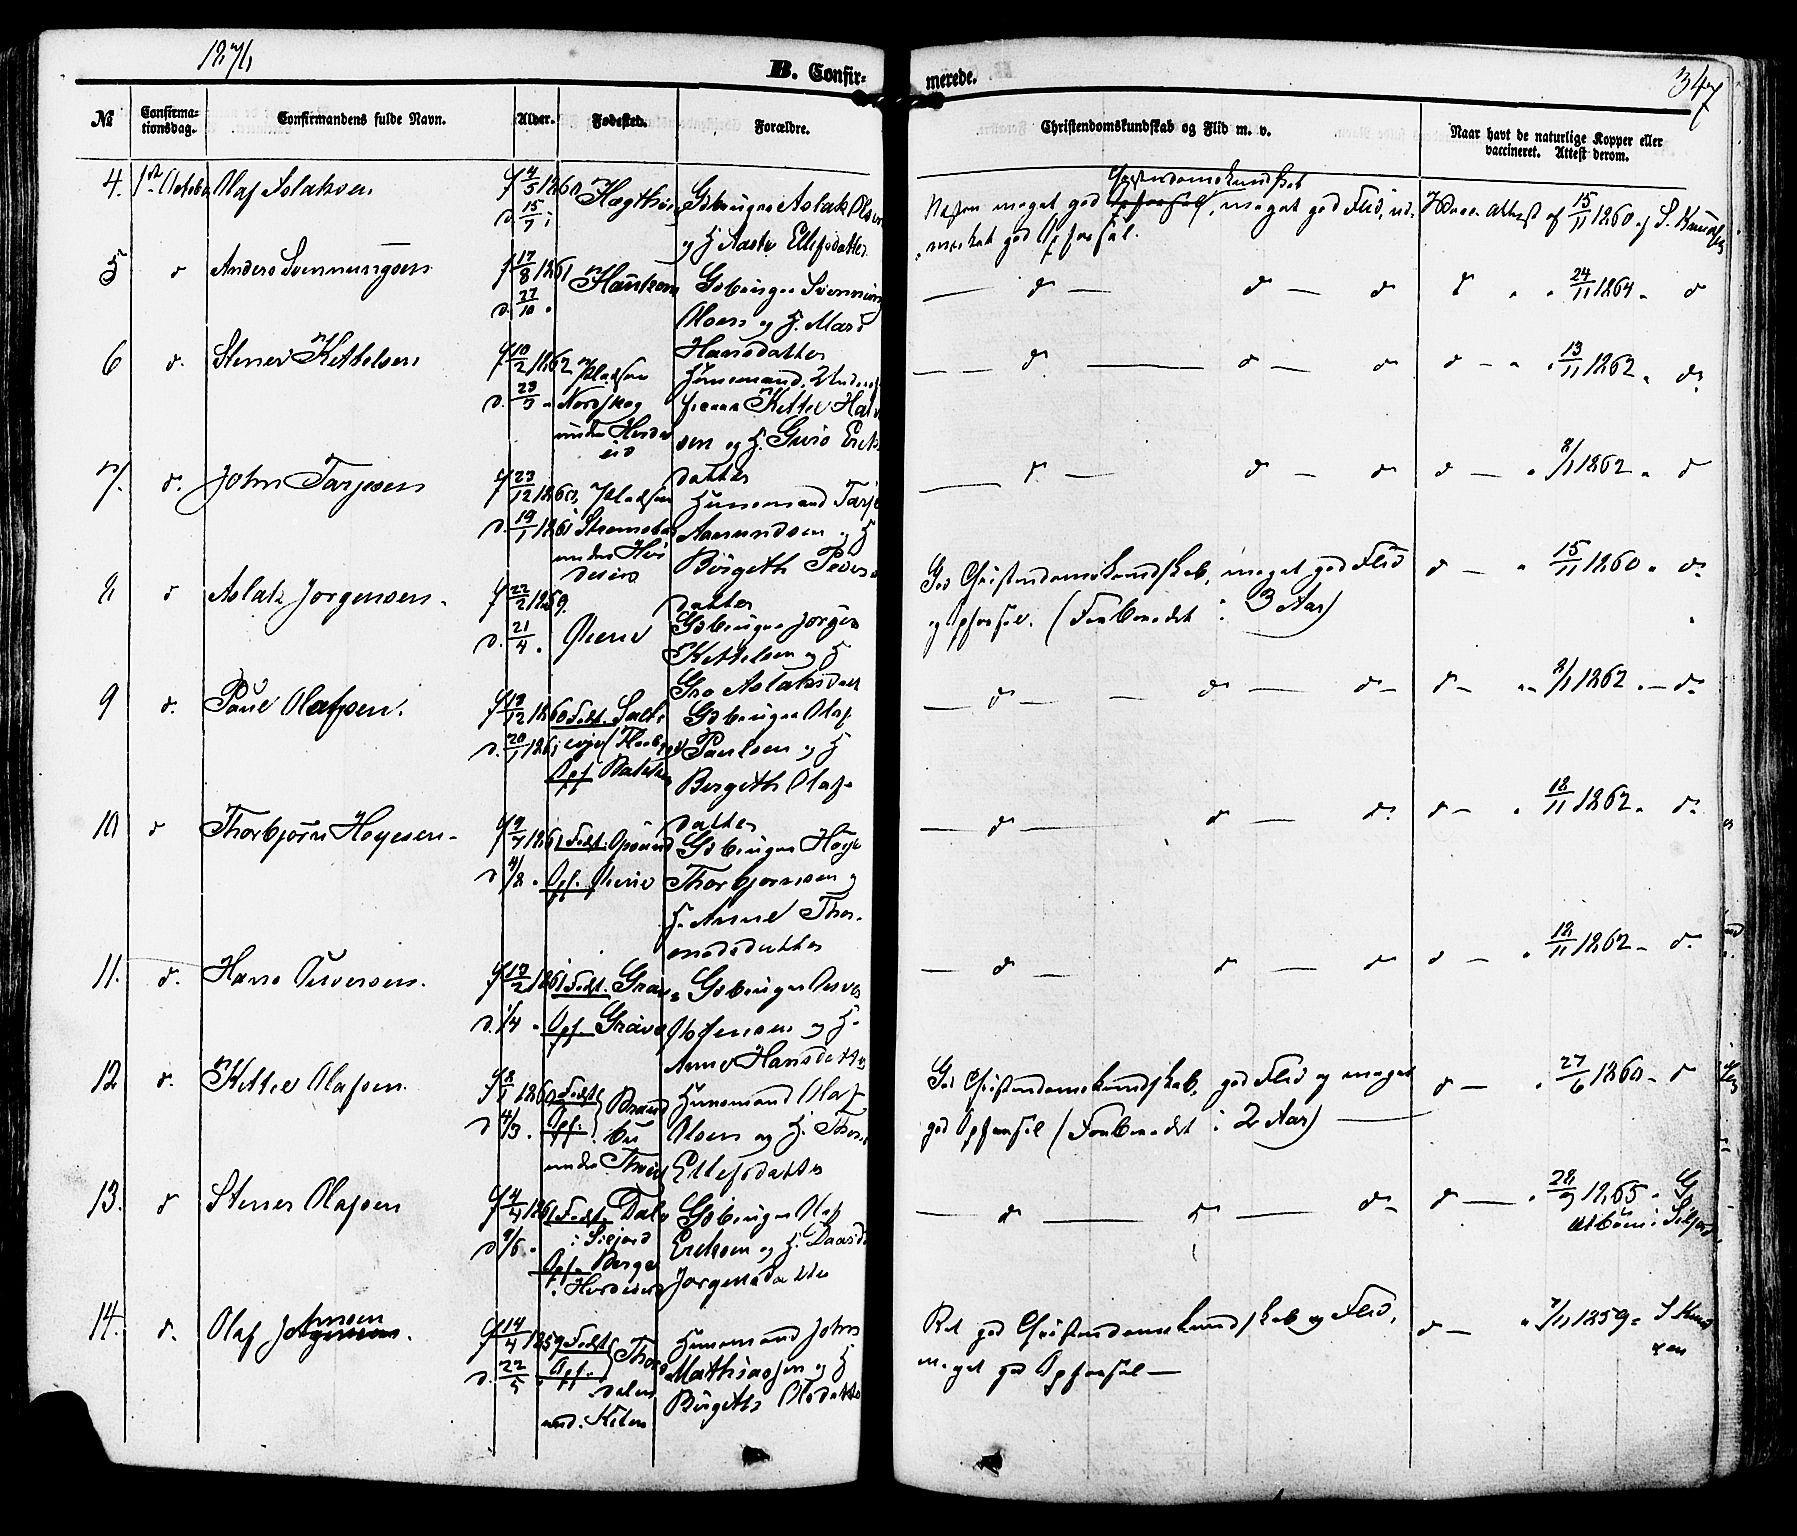 1876
B. Confir-
merede.
347
№
Confirma-
tionsdag.
Confirmandens fulde Navn.
Alder.
Fødested.
Forældre.
Christendomskundskab og Flid m. v.
Naar havt de naturlige Kopper eller
vaccineret. Attest derom.
4. 1ste Octobr Olaf Aslaksen
f 4/5 1860
d. 15/7 "
Gbruger Aslak Olsen
og H. Aaste Ellefsdatter
Næsten meget god Christendomskundskab, meget god Flid, ud-
mærket god Opførsel.
Vacc. attest af 15/11 1860 af S. Knudsen
5 d Anders Svennungsen
f 17/8 1861
d. 27/10 "
Haukom
Gbruger Svennung
Olsen og H. Mari
Hansdatter
— d — d — d
d " " 24/11 1864 " d
6 d. Stener Kittelsen
f 10/2 1862
d. 23/3 "
Pladsen
Nordskog
under Hvide
eid
Huusmand,
Kittel Hal
sen og H. Guro Erik
datter
— d. — d — d
d — " 13/11 1862 " d.
7. d. John Tarjesen
f 23/12 1860
d. 19/1 1861
Pladsen
under Hvi
deseid
Huusmand Tarje
Aamundsen og H
Birgith Peders
datter
— d. — d — d
d — " 8/11 1862 " d
8 d Aslak Jørgensen
f 22/2 1860
d. 21/4 "
Gbruger Jørgen
Kittelsen og H
Gro Aslaksdatt
God Christendomskundskab, meget god Flid
og Opførsel. (Forberedet i 3 Aar)
d — " 15/11 1860 " d.
9 d. Paul Olafsen.
f 13/12 1860
d. 20/1 1861
Født.
Opf. Bakken
Gbruger Olaf
Paulsen og H
Birgith Olafs-
datter
— d — d — d —
d — " 8/11 1862 " — d.
10 d Thorbjørn Høyesen
f 9/7 1861
d 4/8 "
Født. Opsund
Opf.
Gbruger Høye
Thorbjørnsen og
H. Anne Thor-
modsdatter
— d — d — d.
d — " 18/11 1862 " d.
11. d. Hans Anversen.
f 17/2 1861
d. 1/4 "
Født. Grave
Opf. Grave
Gbruger
og H.
Anne Hansdatter
— d — d — d
d — " 18/11 1862 — d.
12 d. Kittel Olafsen
f 8/1 1860
d 4/3 "
Født
Opf. Brand
bu
under
Huusmand Olaf
Olsen og H. Thone
Ellefsdatter
God Christendomskundskab, god Flid og meget
god Opførsel (Forberedet i 2 Aar) —
d — " 27/6 1860 — d
13. d Stener Olafsen
f 4/4 1861
d 9/5 "
Født. Dale
i Siljord
Opf. Berge
i Hvideseid
Gbruger Olaf
Eriksen og H.
Jørgensdatter
— d — d — d —
d — " 28/9 1865 " G
i Siljord
14. d. Olaf Johnsen
f 14/4 1859
d. 22/5 "
Født
Opf.
dalen
und. Kilen
Huusmand John
Mathiassen og H
Birgith Olsdatter
Ret god Christendomskundskab og Flid,
meget god Opførsel —
d — " 7/11 1859 " S Knud
sen